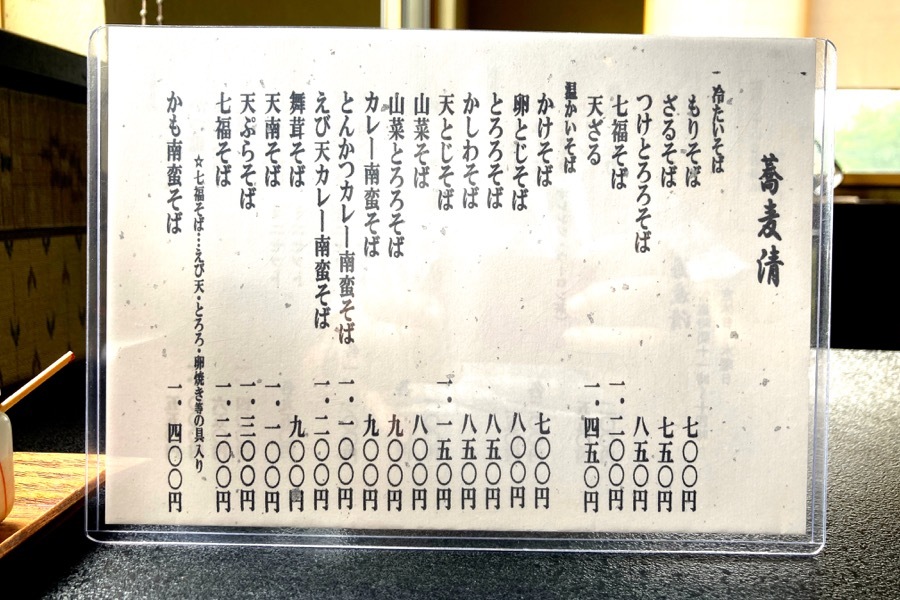 蕎麦清
一 冷たいそば
もりそば 七〇〇円
ざるそば 七五〇円
つけとろろそば 八五〇円
七福そば 一.二〇〇円
天ざる 一.四五〇円
温かいそば
かけそば 七〇〇円
卵とじそば 八〇〇円
とろろそば 八五〇円
かしわそば 八五〇円
天とじそば 一.一五〇円
山菜そば 八〇〇円
山菜とろろそば 九〇〇円
カレー南蛮そば 九〇〇円
とんかつカレー南蛮そば 一.一〇〇円
えび天カレー南蛮そば 一.二〇〇円
舞茸そば 九〇〇円
天南そば 一.一〇〇円
天ぷらそば 一.三〇〇円
七福そば 一.二〇〇円
☆七福そば…えび天・とろろ・卵焼き等の具入り
かも南蛮そば 一.四〇〇円